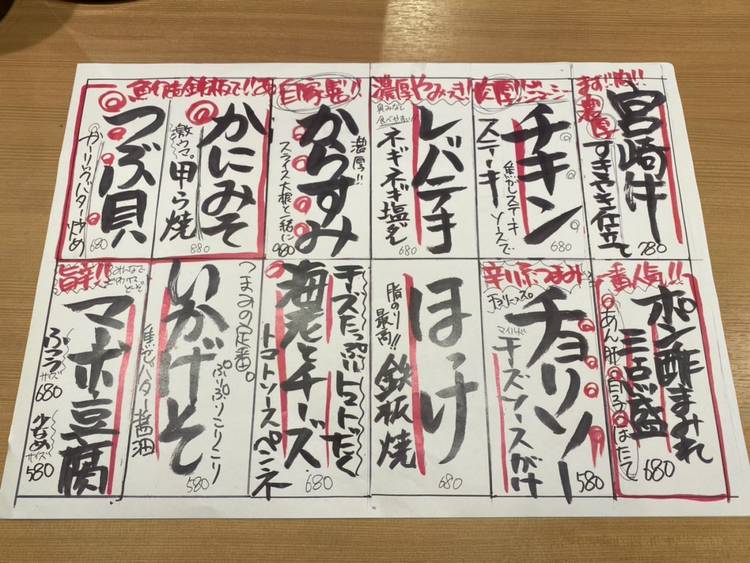 まず!!肉!!
宮崎牛
濃厚すきやき仕立て
780
肉厚!!ジューシー
チキン
ステーキ
焦がしステーキ
ソースで
680
濃厚やみつき!
レバテキ
ネギネギ塩ダレ
680
自家製!!
からすみ
濃厚!!
スライス大根と一緒に
980
かにみそ
激ウマ。
甲ら焼
880
つぶ貝
ガーリックバター炒め
680
一番人気!!
ポン酢まみれ
三点盛
あん肝 白子 ほたて
680
辛りょうつまみ
チョリソー
マイルド
チーズソースがけ
580
ほっけ
脂のり
最高!!
鉄板焼
680
チーズたっぷりトマトだく
海老とチーズ
トマトソースペンネ
680
つまみの定番。
いかげそ
ぷりぷりこりこり
焦がしバター醤油
580
旨辛!!
マーボー豆腐
ふつうサイズ 680
少なめサイズ 580